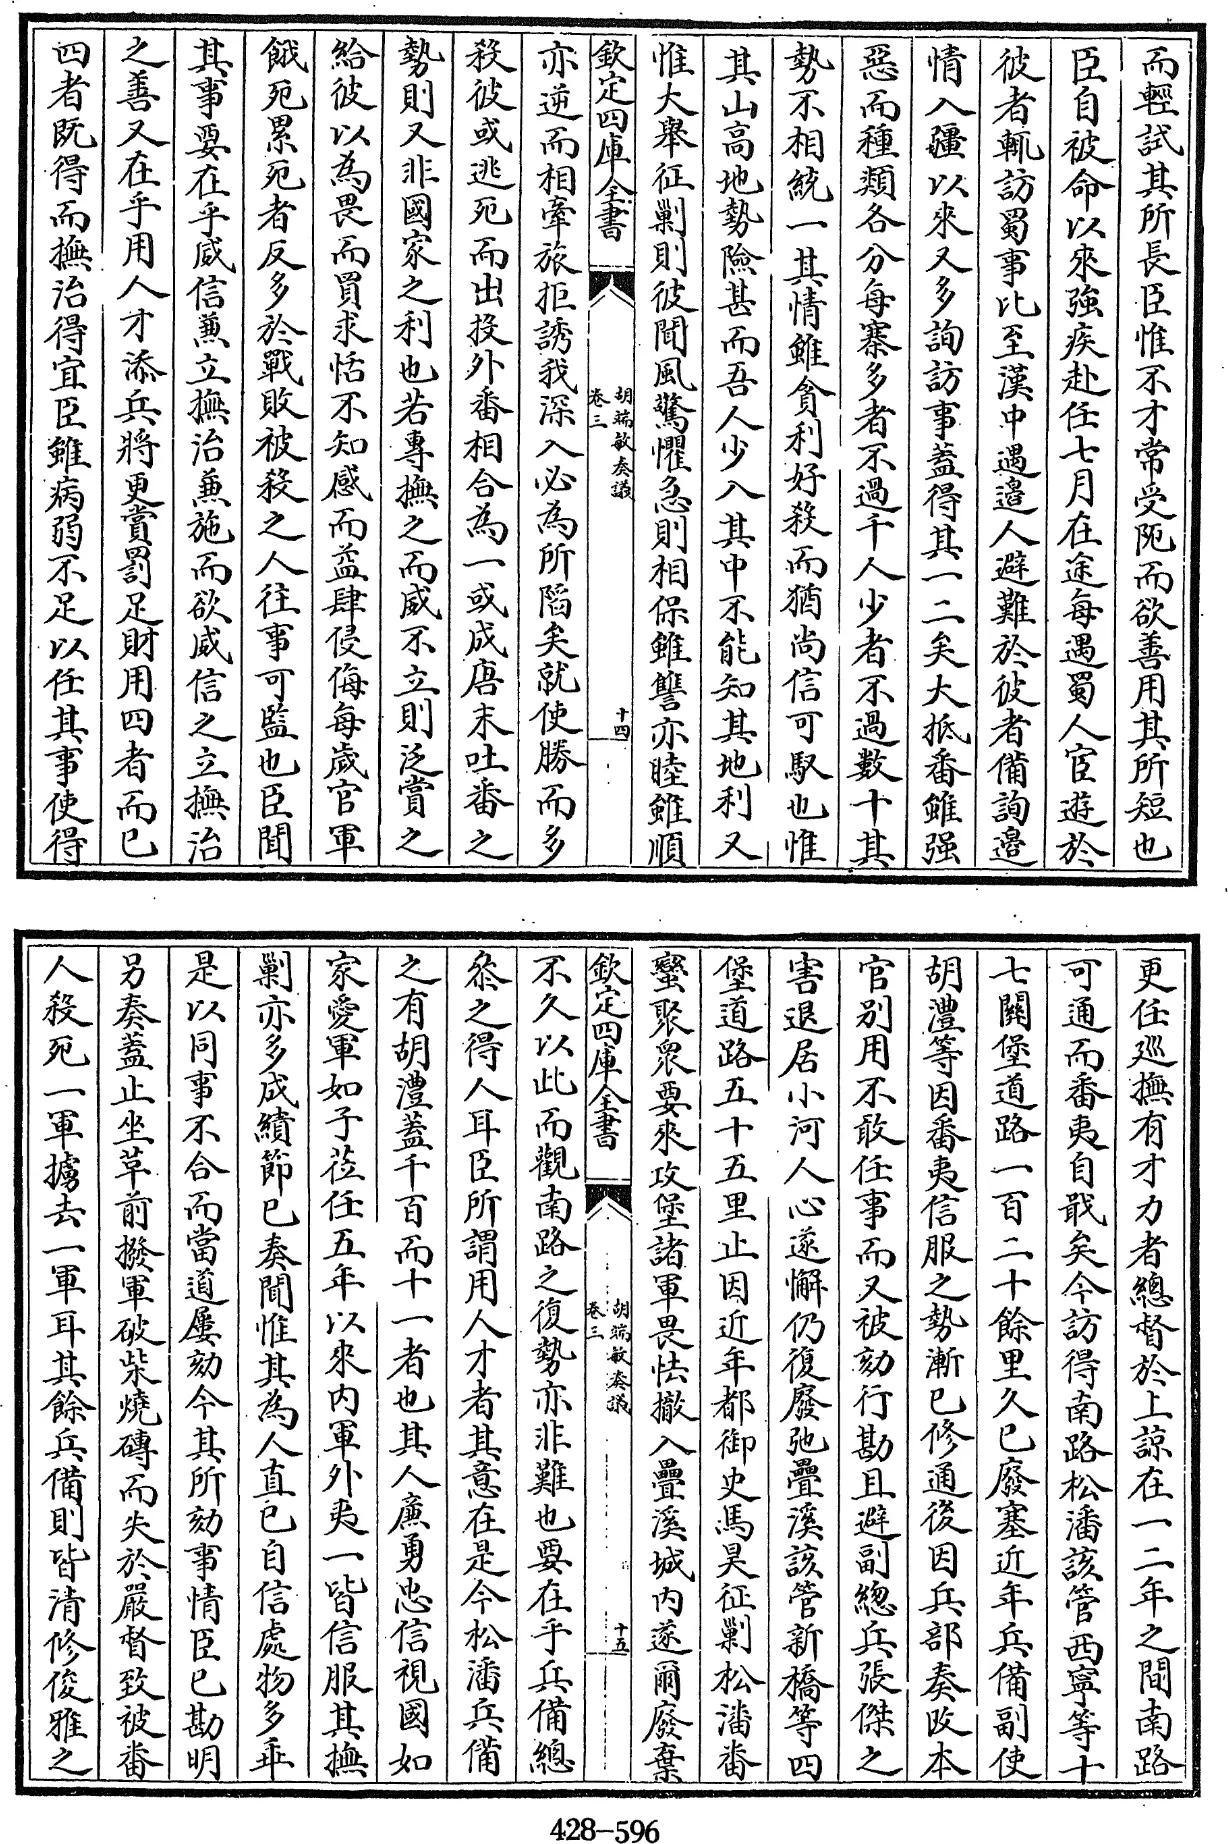 而輕試其所長臣惟不才常受阨而欲善用其所短也
臣自被命以來強疾赴任七月在途每遇蜀人宦遊於
彼者輒訪蜀事比至漢中遇邉人避難於彼者備詢邉
情入疆以來又多詢訪事蓋得其一二矣大抵番雖强
惡而種類各分每寨多者不過千人少者不過數十其
勢不相統一其情雖貪利好殺而猶尚信可馭也惟
其山高地勢險甚而吾人少入其中不能知其地利又
惟大舉征剿則彼聞風驚懼急則相保雖讐亦睦雖順
欽定四庫全書
胡端敏奏議
卷三
十四
亦逆而相牽旅拒誘我深入必為所陷矣就使勝而多
殺彼或逃死而出投外番相合為一或成唐末吐番之
勢則又非國家之利也若專撫之而威不立則泛賞之
給彼以為畏而買求恬不知感而益肆侵侮每歲官軍
餓死累死者反多於戰敗被殺之人往事可監也臣聞
其事要在乎威信兼立撫治兼施而欲威信之立撫治
之善又在乎用人才添兵將更賞罰足財用四者而已
四者既得而撫治得宜臣雖病弱不足以任其事使得
更任廵撫有才力者總督於上諒在一二年之間南路
可通而番夷自戢矣今訪得南路松潘該管西寧等十
七關堡道路一百二十餘里久已廢塞近年兵備副使
胡澧等因番夷信服之勢漸已修通後因兵部奏改本
官别用不敢任事而又被劾行勘且避副總兵張傑之
害退居小河人心遂懈仍復廢弛疊溪該管新橋等四
堡道路五十五里止因近年都御史馬昊征剿松潘番
蠻聚衆要來攻堡諸軍畏怯撤入疊溪城内遂爾廢棄
欽定四庫全書
胡端敏奏議
卷三
十五
不久以此而觀南路之復勢亦非難也要在乎兵備總
叅之得人耳臣所謂用人才者其意在是今松潘兵備
之有胡澧蓋千百而十一者也其人廉勇忠信視國如
家愛軍如子蒞任五年以來内軍外夷一皆信服其撫
剿亦多成績節已奏聞惟其為人直已自信處物多乖
是以同事不合而當道屢劾今其所劾事情臣已勘明
另奏蓋止坐草前撥軍破柴燒磚而失於嚴督致被番
人殺死一軍擄去一軍耳其餘兵備則皆清修俊雅之
428-596